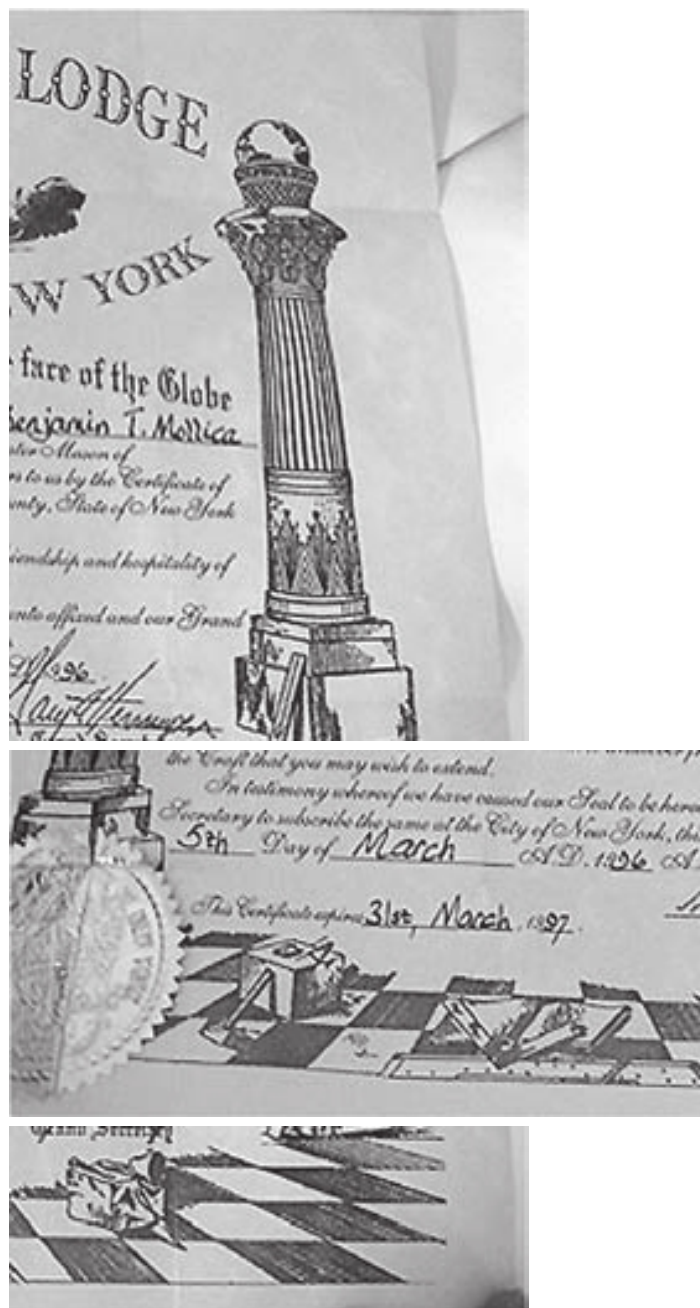 LODGE
W YORK
face of the Globe
Benjamin T. Mollica
ster Mason of
rs to us by the Certificate of
unty, State of New York
iendship and hospitality of
ents affixed and our Grand
1996
the Craft that you may wish to extend.
In testimony whereof we have caused our Seal to be here
Secretary to subscribe the same at the City of New York, this
5th Day of March A.D. 1996 A
This Certificate expires 31st, March, 1997.
Grand Secretary